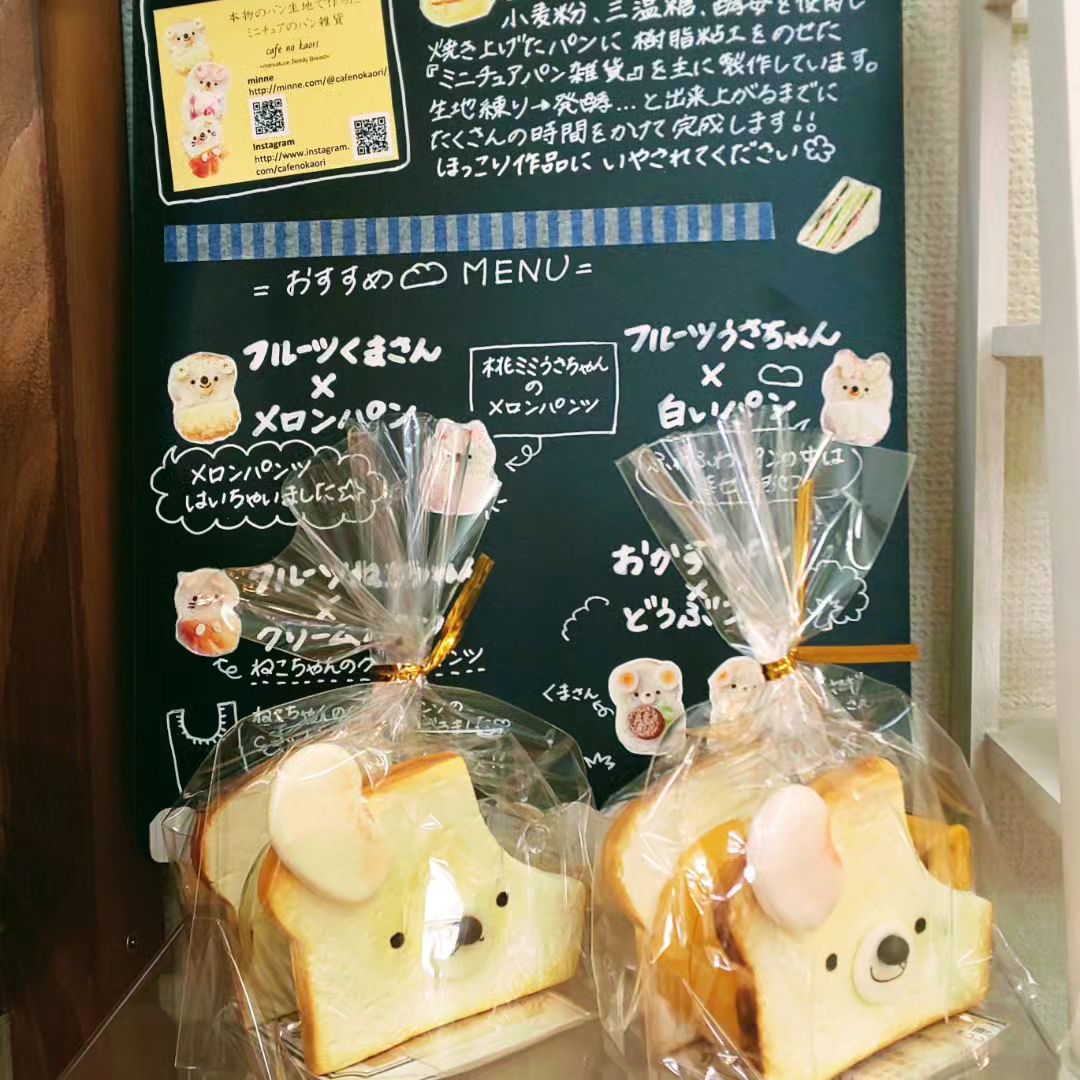 本物のパン生地で作った
ミニチュアのパン雑貨
cafe no kaori
minne
http://minne.com/@cafenokaori/
Instagram
http://www.instagram.
com/cafenokaori
小麦粉、三温糖、酵母を使用し
焼き上げたパンに樹脂粘土をのせた
『ミニチュアパン雑貨』を主に製作しています。
生地練り→発酵...と出来上がるまでに
たくさんの時間をかけて完成します!!
ほっこり作品にいやされてください
=おすすめ MENU=
フルーツくまさん
×
メロンパン
メロンパンツ
はいちゃいました☆
桃ミミうさちゃん
の
メロンパンツ
フルーツうさちゃん
×
白いパン
フルーツねこちゃん
×
クリーム
ねこちゃんのク ンツ
おかず
×
どうぶつ
くまさん